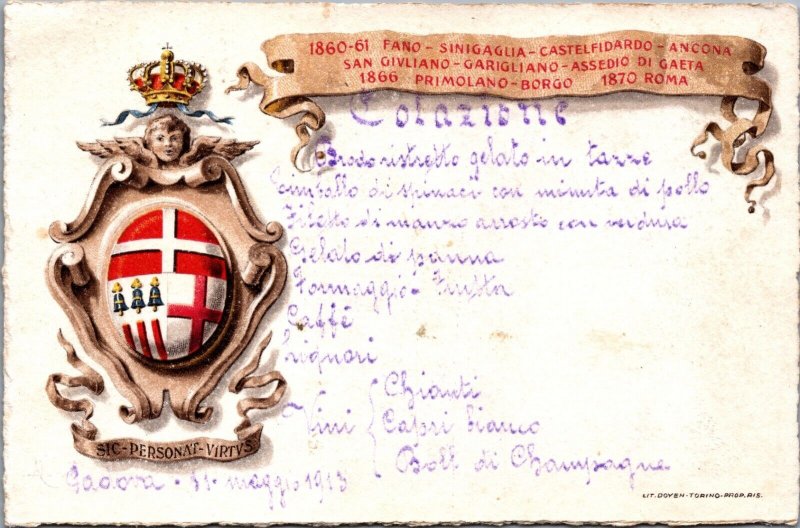 1860-61 FANO - SINIGAGLIA - CASTELFIDARDO - ANCONA
SAN GIVLIANO - GARIGLIANO - ASSEDIO DI GAETA
1866 PRIMOLANO - BORGO 1870 ROMA
Colazione
Brodo ristretto gelato in tazze
Timballo di spinaci con minuta di pollo
Filetto di manzo arrosto con verdura
Gelato di panna
Formaggio - Frutta
Caffè
Liquori
Vini
Chianti
Capri bianco
Boll di Champagne
SIC - PERSONAT - VIRTVS
31 - maggio 1913
LIT. DOYEN - TORINO - PROP. RIS.